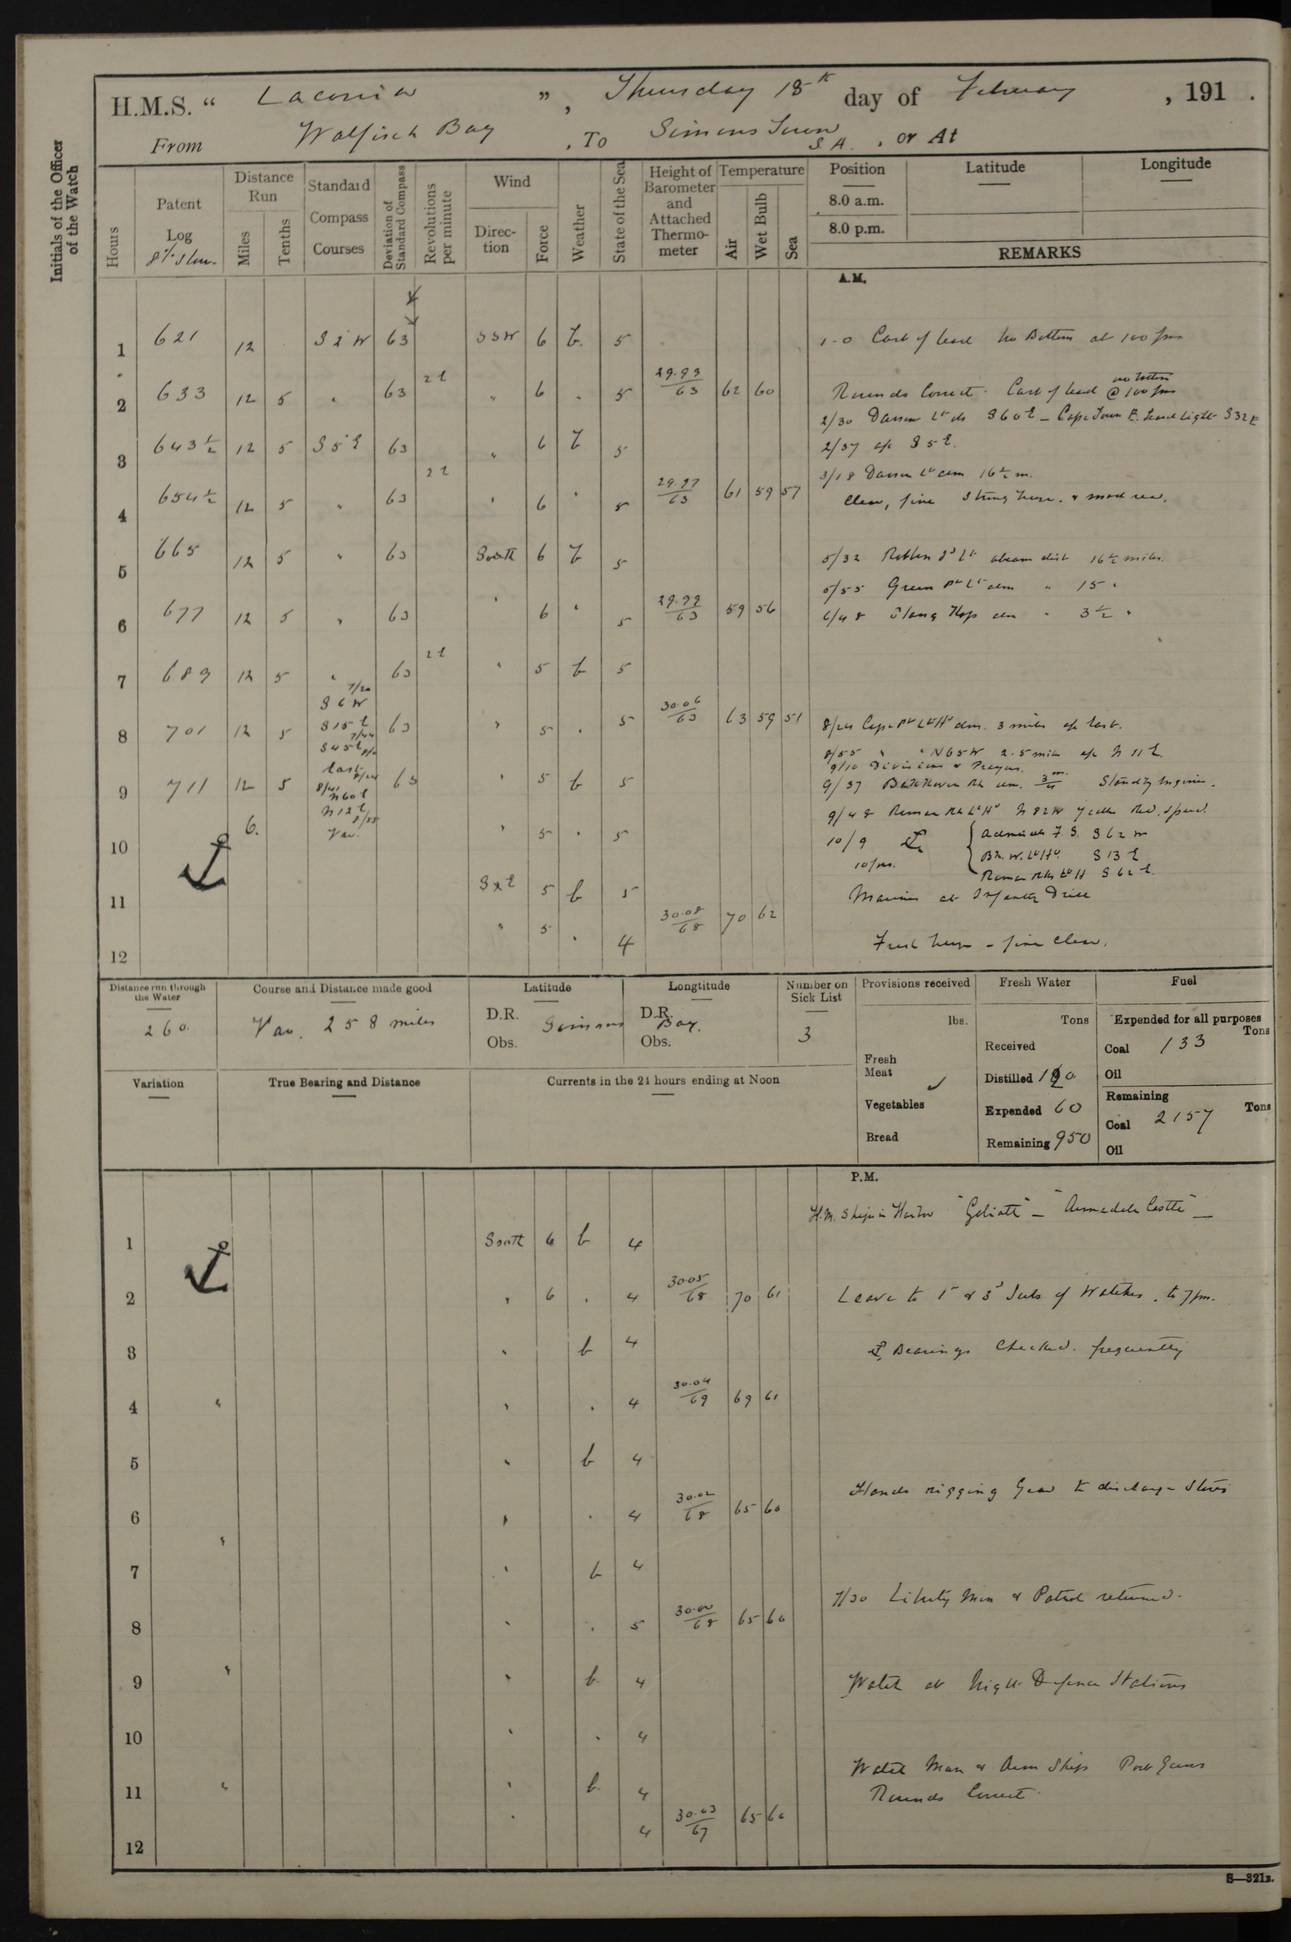 Initials of the Officer of the Watch
H.M.S. “ Laconia ” , Thursday 18th day of February , 191 .
From Walfisch Bay , To Simons Town S.A. , or At
Hours
Patent Log
Distance Run
Miles
Tenths
Standard Compass Courses
Deviation of Standard Compass
Revolutions per minute
Wind
Direction
Force
Weather
State of the Sea
Height of Barometer and Attached Thermometer
Temperature
Air
Wet Bulb
Sea
Position
8.0 a.m.
8.0 p.m.
Latitude
Longitude
REMARKS
A.M.
1 621 12 63 SSW 6 b. 5 1-0 Cast of lead No Bottom at 100 fms
2 633 12 5 " 63 " 6 " 5 29.93/63 62 60 Rounds Correct. Cast of lead no bottom @ 100 fms
2/30 Dassen Lt ds S60E – Cape Town
3 643½ 12 5 S5E 63 " 6 b 5 2/37 a/c S5E.
3/18 Dassen Lt abm 16½ m.
4 654½ 12 5 " 63 " 6 " 5 29.97/63 61 59 57 Clear, fine Strong breeze & mod sea.
5 665 12 5 " 63 South 6 b 5 5/32 Robben Id Lt abeam dist 16½ miles.
5/55 Green Pt Lt abm " 15 "
6 677 12 5 " 63 " 6 " 5 29.99/63 59 56 6/48 Slang Kop abm " 3½ "
7 689 12 5 " 63 " 5 b 5
7/20 S6W
8 701 12 5 S15E 63 " 5 . 5 30.06/63 63 59 51 8/24 Cape Pt Lt Ho abm. 3 miles a/c East.
S45E
8/55 " " N65W 2.5 mile a/c N11E.
9/10 Divisions & Prayers.
9 711 12 5 East 63 " 5 b 5 9/37 abm. Standby Engines.
N60E
N12E 8/55
9/48 Roman Rk Lt Ho N82W
10 6. Var. " 5 . 5 10/9 Admirals F.S. S62W
Lt Ho. S13E
Roman Rks Lt H S62E.
11 SxE 5 b 5 Marines at Infantry Drill
12 " 5 . 4 30.08/68 70 62 Fresh breeze – fine clear.
Distance run through the Water
260
Course and Distance made good
Var. 258 miles
Latitude
D.R.
Obs.
Longtitude
D.R.
Obs.
Simons Bay.
Number on Sick List
3
Provisions received
lbs.
Fresh Meat
Vegetables
Bread
Fresh Water
Tons
Received
Distilled
Expended 60
Remaining 950
Fuel
Expended for all purposes
Tons
Coal 133
Oil
Remaining
Tons
Coal 2157
Oil
Variation
True Bearing and Distance
Currents in the 24 hours ending at Noon
P.M.
H.M. Ships in Harbor "Goliath" – "Armadale Castle" –
1 South 6 b 4
2 " 6 . 4 30.05/68 70 61 Leave to 1st & 3d Subs of Watches. to 7pm.
3 " b 4 Bearings Checked frequently
4 " " . 4 30.04/69 69 61
5 " b 4
Hands rigging Gear to discharge Stores
6 " . 4 30.02/68 65 60
7 " b 4
7/30 Liberty Men & Patrol returned.
8 " . 5 30.00/68 65 60
9 " b 4 Watch at Night Defence Stations
10 " . 4
Watch Man & Arm Ships Port Guns
11 " b 4 Rounds Correct.
12 " 4 30.03/67 65 60
S—321B.